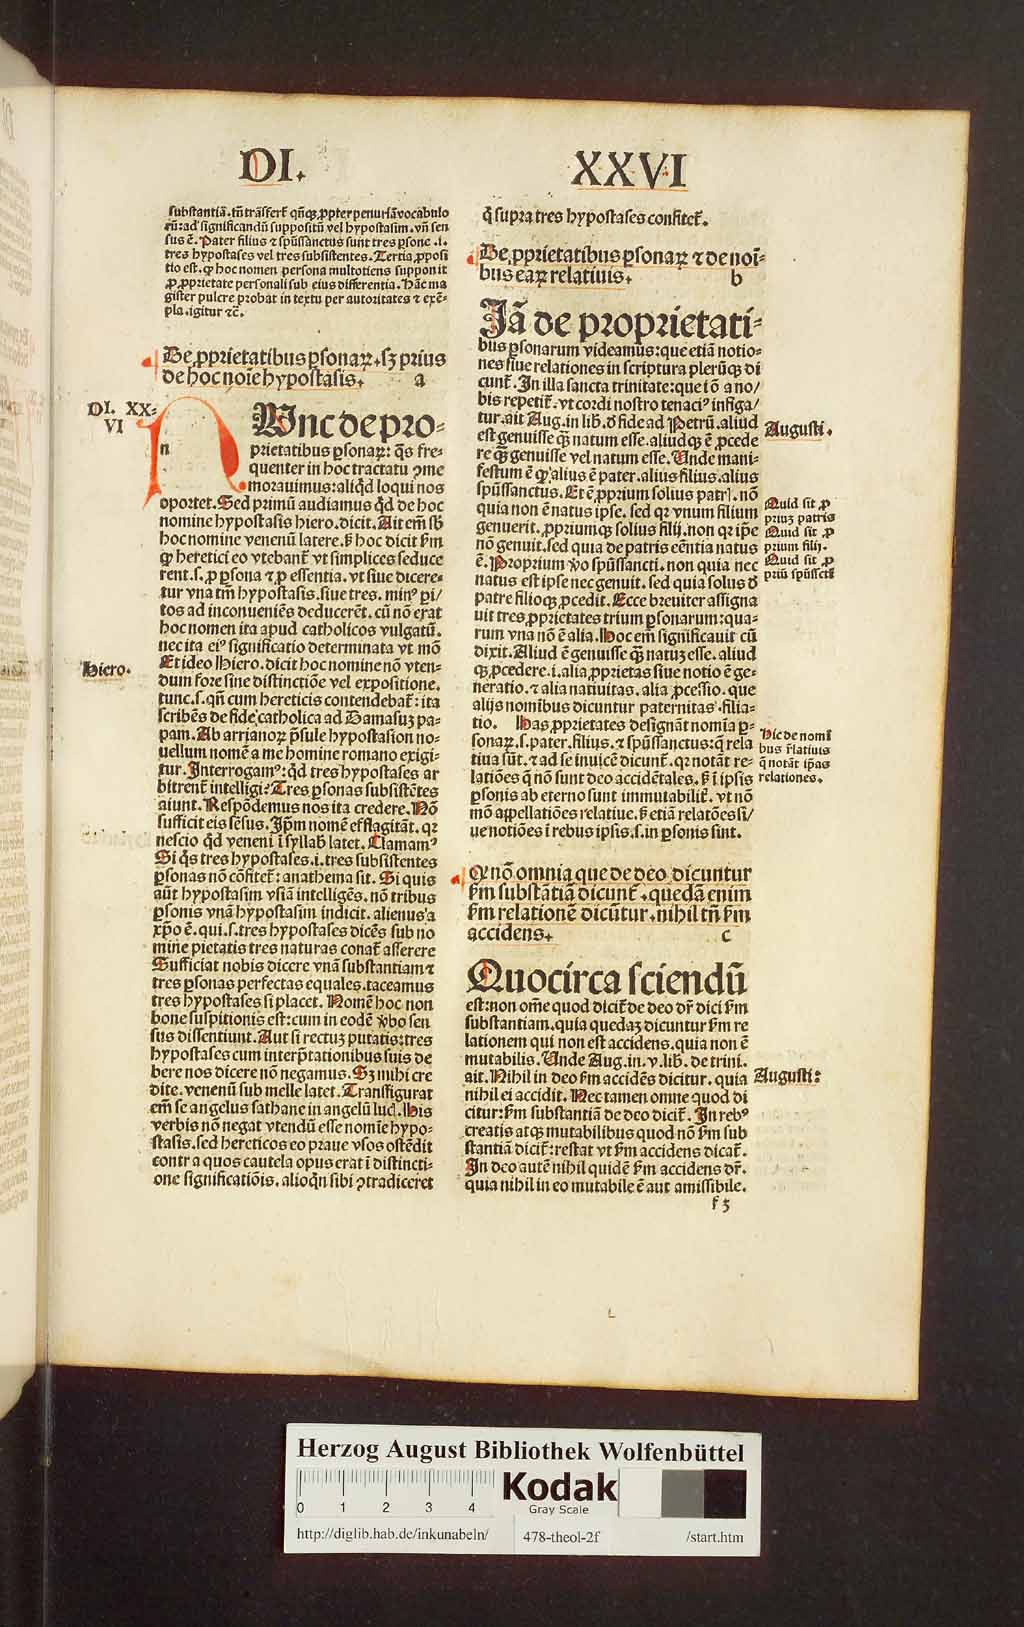 DI. XXVI
substantiā. tn̄ trāsfert̄ qn̄qꝫ ꝓpter penuriā vocabulo
rū: ad significandū suppositū vel hypostasim. vn̄ sen
sus ē. Pater filius ⁊ spūssanctus sunt tres ꝑsone .i.
tres hypostases vel tres subsistentes. Tertia ꝓposi
tio est. ꝙ hoc nomen persona multotiens supponit
ꝓ ꝓprietate personali sub eius differentia. Hāc ma
gister pulcre probat in textu per autoritates ⁊ exē-
pla. igitur ⁊c̄.
De ꝓprietatibus ꝑsonaꝝ. sꝫ prius
de hoc noīe hypostasis. a
DI. XX-
VI
n
Wnc de pro-
prietatibus ꝑsonaꝝ: q̄s fre-
quenter in hoc tractatu ꝯme
morauimus: aliq̇d loqui nos
oportet. Sed primū audiamus q̇d de hoc
nomine hypostasis hiero. dicit. Ait em̄ sb̄
hoc nomine venenū latere. ß hoc dicit ẜm
ꝙ heretici eo vtebant̄ vt simplices seduce
rent .s. ꝓ ꝑsona ⁊ ꝓ essentia. vt siue dicere-
tur vna tm̄ hypostasis. siue tres. minꝰ ꝑi/
tos ad inconueniēs deducerēt. cū nō erat
hoc nomen ita apud catholicos vulgatū.
nec ita eiꝰ significatio determinata vt mō
Et ideo Hiero. dicit hoc nomine nō vten-
Hiero.
dum fore sine distinctiōe vel expositione.
tunc .s. qn̄ cum hereticis contendebat̄: ita
scribēs de fide catholica ad Damasuꝫ pa-
pam. Ab arrianoꝝ p̄sule hypostasion no-
uellum nomē a me homine romano exigi-
tur. Interrogamꝰ: q̇d tres hypostases ar
bitrent̄ intelligi? Tres ꝑsonas subsistētes
aiunt. Respōdemus nos ita credere. Nō
sufficit eis sēsus. Ip̄m nomē efflagitāt. qꝛ
nescio q̇d veneni ī syllab̄ latet. Clamamꝰ
Si q̇s tres hypostases .i. tres subsistentes
ꝑsonas nō cōfitet̄: anathema sit. Si quis
aūt hypostasim vsiā intelligēs. nō tribus
ꝑsonis vnā hypostasim indicit. alienus a
xp̄o ē. qui .s. tres hypostases dicēs sub no
mine pietatis tres naturas conat̄ asserere
Sufficiat nobis dicere vnā substantiam ⁊
tres ꝑsonas perfectas equales. taceamus
tres hypostases si placet. Nomē hoc non
bone suspitionis est: cum in eodē v̄bo sen
sus dissentiunt. Aut si rectuꝫ putatis: tres
hypostases cum interp̄tationibus suis de
bere nos dicere nō negamus. Sꝫ mihi cre
dite. venenū sub melle latet. Transfigurat
em̄ se angelus sathane in angelū luc̄. His
verbis nō negat vtendū esse nomīe hypo-
stasis. sed hereticos eo praue vsos ostēdit
contra quos cautela opus erat ī distincti-
one significatiōis. alioq̇n sibi ꝯtradiceret
q̇ supra tres hypostases confitet̄.
De ꝓprietatibus ꝑsonaꝝ ⁊ de noī-
bus eaꝝ relatiuis. b
Jā de proprietati-
bus ꝑsonarum videamus: que etiā notio-
nes siue relationes in scriptura plerūqꝫ di
cunt̄. In illa sancta trinitate: que iō a no/
bis repetit̄. vt cordi nostro tenaciꝰ infiga/
tur. ait Aug. in lib. d̄ fide ad Petrū. aliud
Augusti.
est genuisse q̄ꝫ natum esse. aliudqꝫ ē ꝓcede
re q̄ꝫ genuisse vel natum esse. Unde mani-
festum ē ꝙ alius ē pater. alius filius. alius
spūssanctus. Et ē ꝓprium solius patr̄. nō
quia non ē natus ipse. sed qꝛ vnum filium
Quid sit ꝓ
priuꝫ patris
genuerit. ꝓpriumqꝫ solius filij. non qꝛ ip̄e
Quid sit ꝓ
prium filij.
nō genuit. sed quia de patris eēntia natus
Quid sit ꝓ
priū spūsscti
ē. Proprium v̄o spūssancti. non quia nec
natus est ipse nec genuit. sed quia solus d̄
patre filioqꝫ ꝓcedit. Ecce breuiter assigna
uit tres ꝓprietates trium ꝑsonarum: qua-
rum vna nō ē alia. Hoc em̄ significauit cū
dixit. Aliud ē genuisse q̄ꝫ natuꝫ esse. aliud
qꝫ ꝓcedere .i. alia ꝓprietas siue notio ē ge-
neratio. ⁊ alia natiuitas. alia ꝓcessio. que
alijs nomībus dicuntur paternitas. filia-
tio. Has ꝓprietates designāt nomīa ꝑ-
sonaꝝ .s. pater. filius. ⁊ spūssanctus: q̄ rela
Hic de nomī
bus r̄latiuis
q̄ notāt ip̄as
relationes.
tiua sūt. ⁊ ad se inuicē dicunt̄. qꝛ notāt re-
latiōes q̄ nō sunt deo accidētales. ß ī ipsis
ꝑsonis ab eterno sunt immutabilit̄. vt nō
mō appellatiōes relatiue. ß etiā relatōes si/
ue notiōes ī rebus ipsis .s. in ꝑsonis sint.
Ꝙ nō omnia que de deo dicuntur
ẜm substātiā dicunt̄. quedā enim
ẜm relationē dicūtur. nihil tn̄ ẜm
accidens. c
Quocirca sciendū
est: non om̄e quod dicit̄ de deo dr̄ dici ẜm
substantiam. quia quedaꝫ dicuntur ẜm re
lationem qui non est accidens. quia non ē
mutabilis. Unde Aug. in .v. lib. de trini.
ait. Nihil in deo ẜm accidēs dicitur. quia
Augusti:
nihil ei accidit. Nec tamen omne quod di
citur: ẜm substantiā de deo dicit̄. In rebꝰ
creatis atqꝫ mutabilibus quod nō ẜm sub
stantiā dicit̄: restat vt ẜm accidens dicat̄.
In deo autē nihil quidē ẜm accidens dr̄.
quia nihil in eo mutabile ē aut amissibile.
f 3
Herzog August Bibliothek Wolfenbüttel
0 1 2 3 4
Kodak
Gray Scale
http://diglib.hab.de/inkunabeln/ 478-theol-2f /start.htm